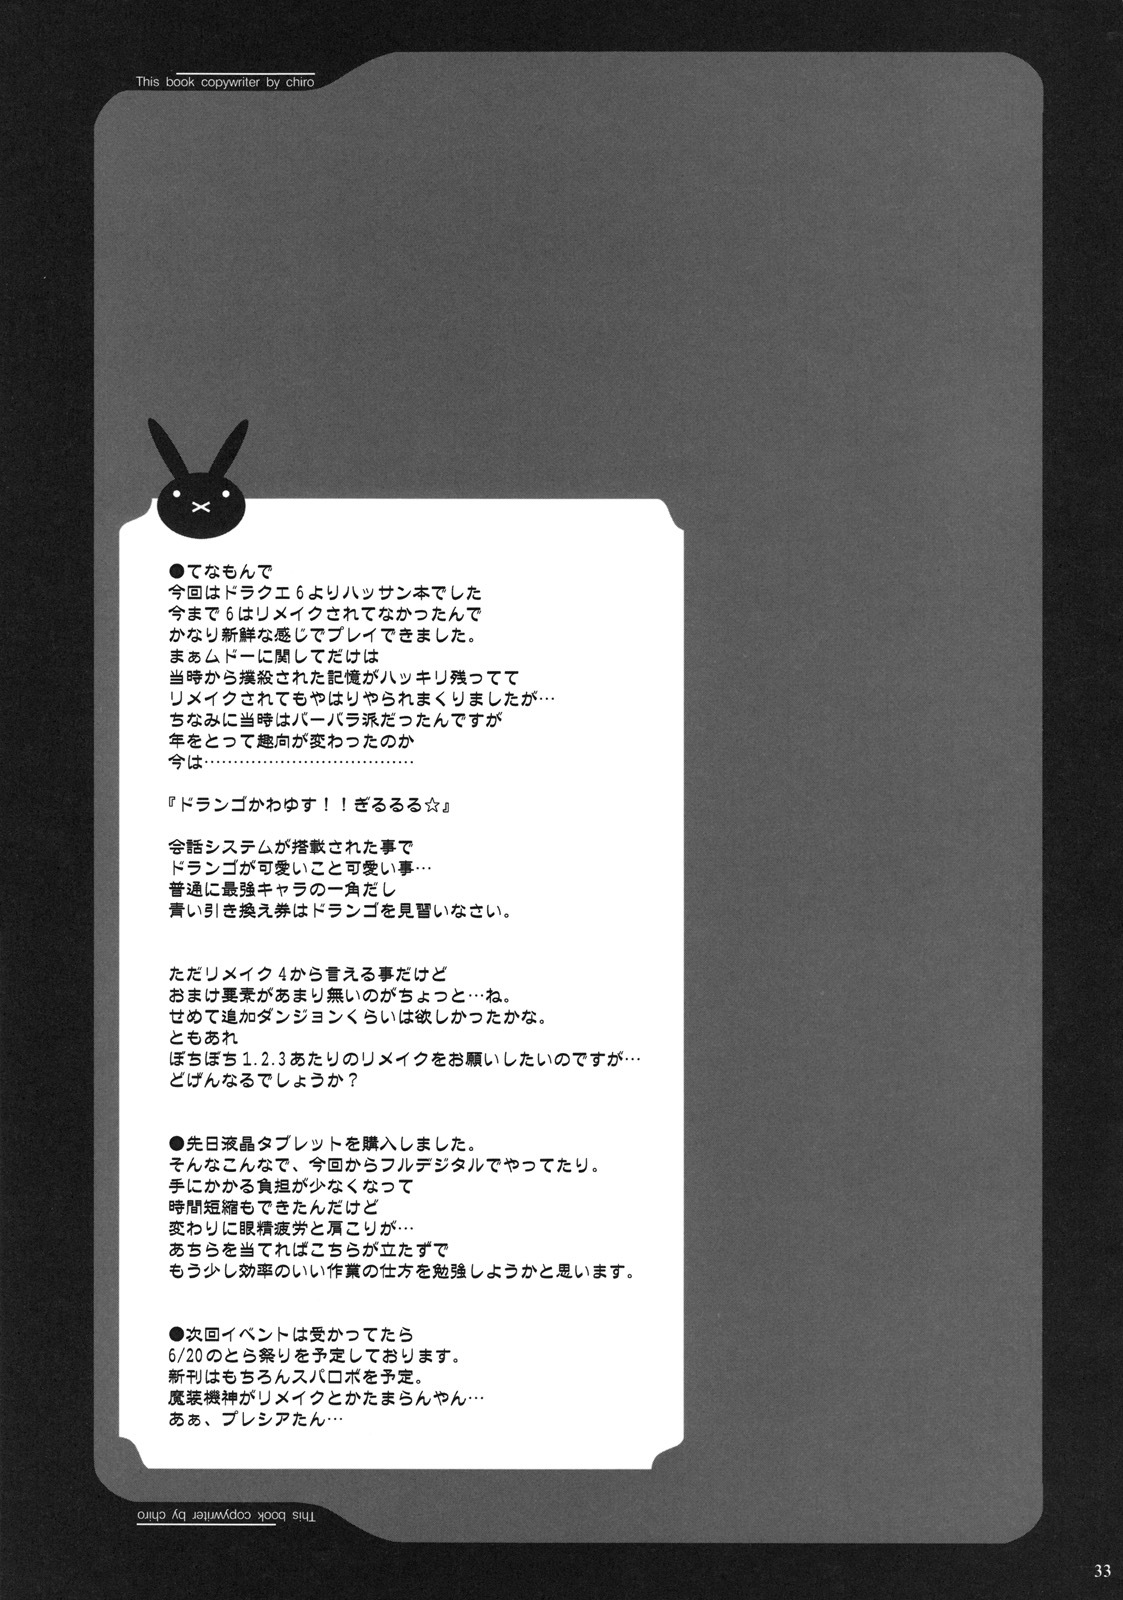 This book copywriter by chiro
●てなもんで
今回はドラクエ6よりハッサン本でした
今まで6はリメイクされてなかったんで
かなり新鮮な感じでプレイできました。
まぁムドーに関してだけは
当時から撲殺された記憶がハッキリ残ってて
リメイクされてもやはりやられまくりましたが…
ちなみに当時はバーバラ派だったんですが
年をとって趣向が変わったのか
今は………………………………
『ドランゴかわゆす！！ぎるるる☆』
会話システムが搭載された事で
ドランゴが可愛いこと可愛い事…
普通に最強キャラの一角だし
青い引き換え券はドランゴを見習いなさい。
ただリメイク4から言える事だけど
おまけ要素があまり無いのがちょっと…ね。
せめて追加ダンジョンくらいは欲しかったかな。
ともあれ
ぼちぼち1.2.3あたりのリメイクをお願いしたいのですが…
どげんなるでしょうか？
●先日液晶タブレットを購入しました。
そんなこんなで、今回からフルデジタルでやってたり。
手にかかる負担が少なくなって
時間短縮もできたんだけど
変わりに眼精疲労と肩こりが…
あちらを当てればこちらが立たずで
もう少し効率のいい作業の仕方を勉強しようかと思います。
●次回イベントは受かってたら
6/20のとら祭りを予定しております。
新刊はもちろんスパロボを予定。
魔装機神がリメイクとかたまらんやん…
あぁ、プレシアたん…
This book copywriter by chiro
33